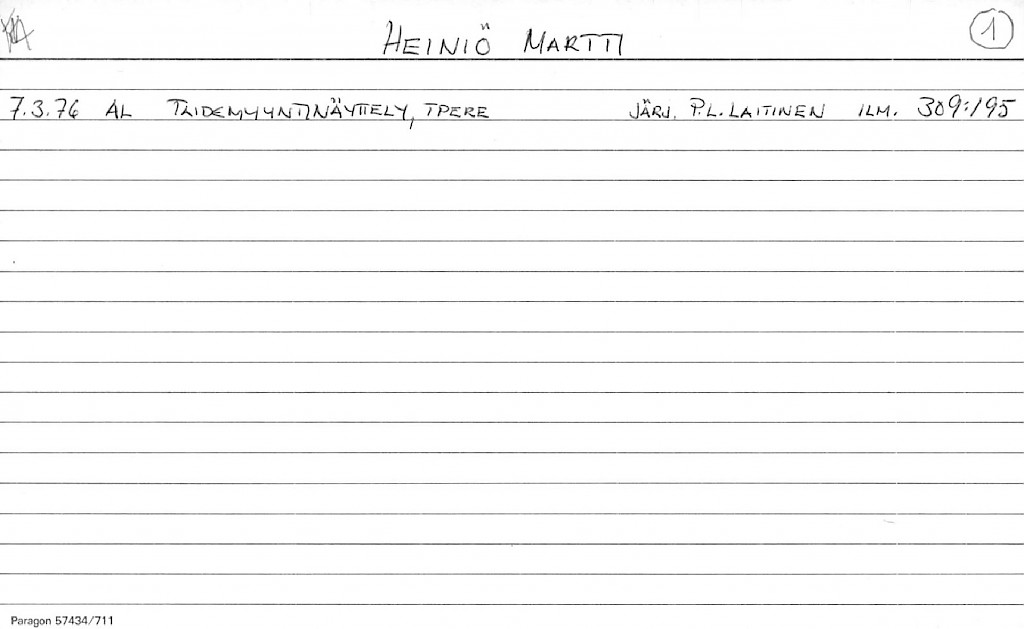 HEINIÖ MARTTI 1
7.3.76 AL TAIDEMYYNTINÄYTTELY, TPERE JÄRJ. P.L. LAITINEN ILM. 309:195
Paragon 57434/711